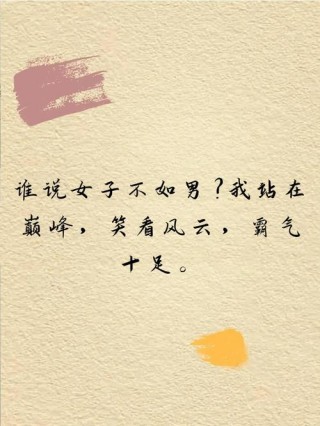 谁说女子不如男?我站在
巅峰，笑看风云，霸气
十足。